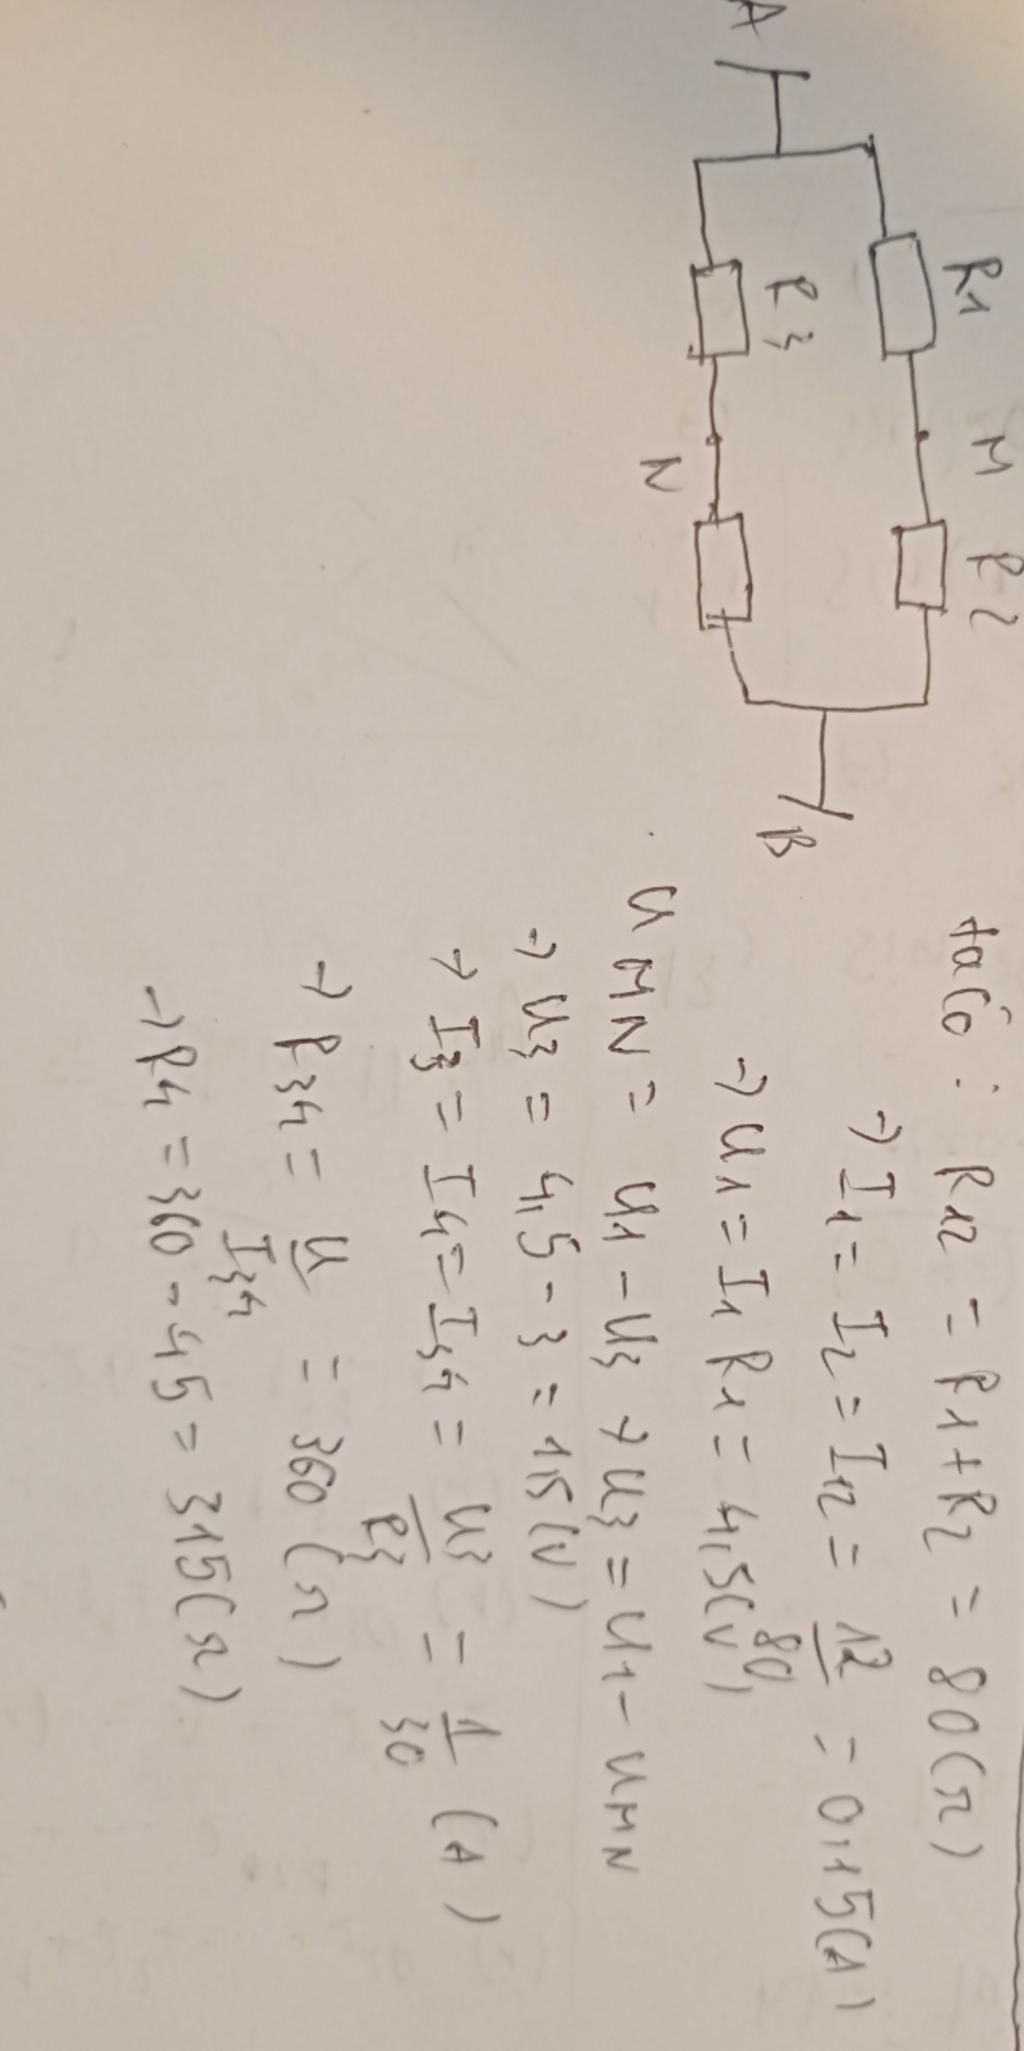 A
R1
M
R2
R3
N
B
ta có : R12 = R1 + R2 = 80(Ω)
→ I1 = I2 = I12 = 12/80 = 0,15(A)
→ U1 = I1 R1 = 4,5(V)
UMN = U1 - U3 → U3 = U1 - UMN
→ U3 = 4,5 - 3 = 1,5(V)
→ I3 = I4 = I34 = U3/R3 = 1/30 (A)
→ R34 = U/I34 = 360(Ω)
→ R4 = 360 - 45 = 315(Ω)